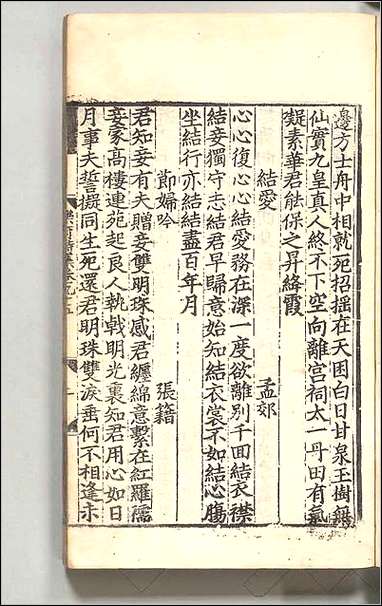 邊方士舟中相就死招搖在天囬白日甘泉玉樹無
仙實九皇真人終不下空向離宮祠太一丹田有氣
凝素華君能保之昇絳霞
結愛 孟郊
心心復心心結愛務在深一度欲離別千囬結衣襟
結妾獨守志結君早歸意始知結衣裳不如結心腸
坐結行亦結結盡百年月
節婦吟 張籍
君知妾有夫贈妾雙明珠感君纏綿意繫在紅羅襦
妾家高樓連苑起良人執戟明光裏知君用心如日
月事夫誓擬同生死還君明珠雙淚垂何不相逢未